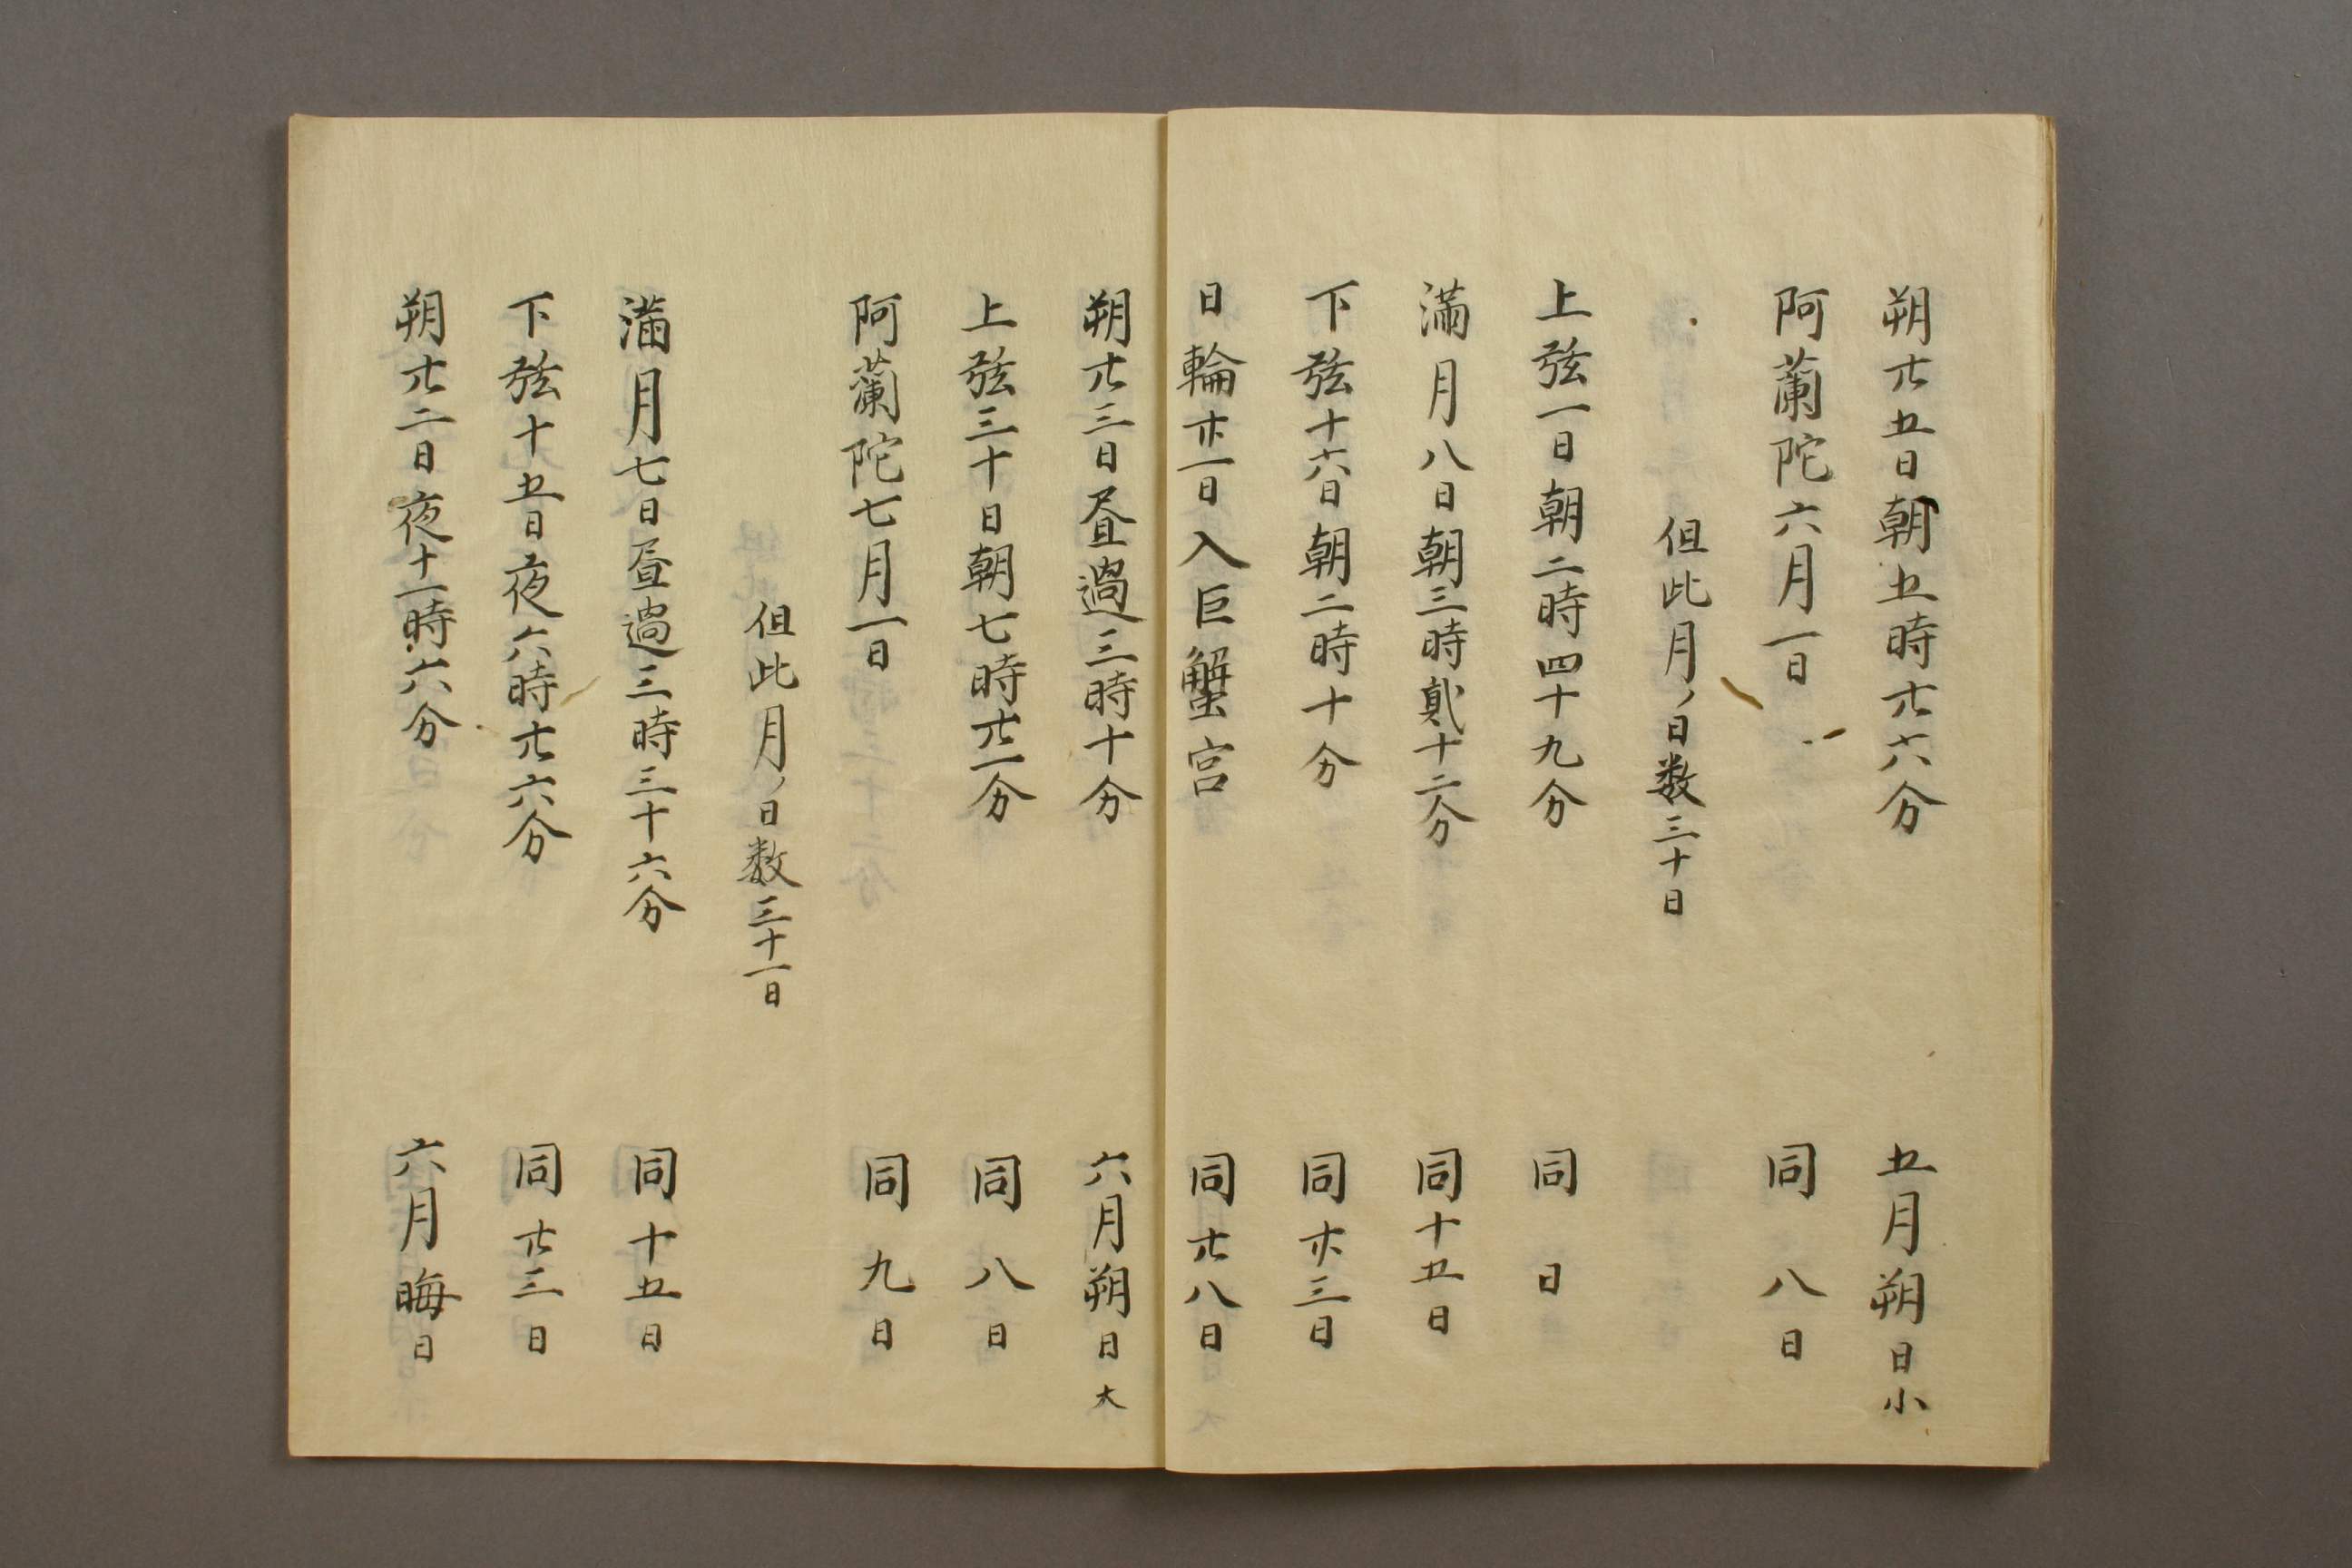 朔廿五日朝五時廿六分 五月朔日小
阿蘭陀六月一日 同八日
但此月ノ日数三十日
上弦一日朝二時四十九分 同日
滿月八日朝三時貳十二分 同十五日
下弦十六日朝二時十分 同廿三日
日輪廿一日入巨蟹宮 同廿八日
朔廿三日昼過三時十分 六月朔日大
上弦三十日朝七時廿一分 同八日
阿蘭陀七月一日 同九日
但此月ノ日数三十一日
滿月七日昼過三時三十六分 同十五日
下弦十五日夜六時廿六分 同廿三日
朔廿二日夜十一時六分 六月晦日